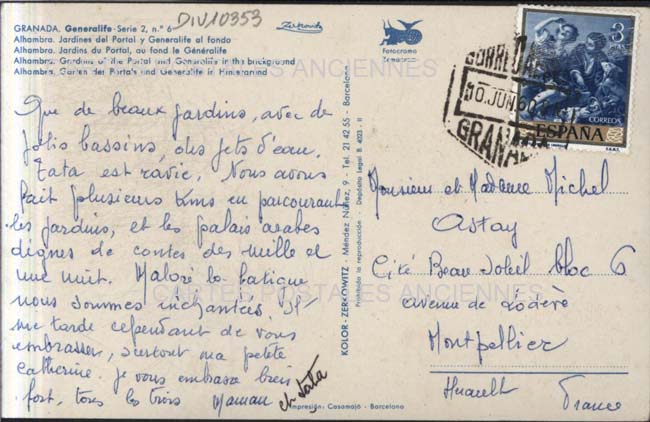 DIV10353
GRANADA. Generalife-Serie 2, n.º 6
Alhambra. Jardines del Portal y Generalife al fondo
Alhambra. Jardins du Portal, au fond le Généralife
Alhambra. Gardens of the Portal and Generalife in the background
Alhambra. Garten des Portals und Generalife in Hintergrund
Zerkowitz
Fotocromo
Zerkowitz
Que de beaux jardins, avec de
jolis bassins, des jets d'eau,
Tata est ravie. Nous avons
fait plusieurs Kms en parcourant
les jardins, et les palais arabes
dignes de contes des mille et
une nuit. Malgré la fatigue
nous sommes enchantées. Il
me tarde cependant de vous
embrasser, surtout ma petite
catherine. je vous embrasse bien
fort, tous les trois Maman et Tata
KOLOR-ZERKOWITZ - Méndez Núñez, 9 - Tel. 21 42 55 - Barcelona
Prohibida la reproducción - Depósito Legal B. 4023 - II
Impresión: Casamajó - Barcelona
3
CORREOS
ESPAÑA
CORREO
30. JUN. 60
GRANADA
Monsieur et Madame Michel
Astay
Cité Beau Soleil bloc 6
avenue de Lodève
Montpellier
Hérault
France
CARTES POSTALES ANCIENNES
CARTES POSTALES ANCIENNES